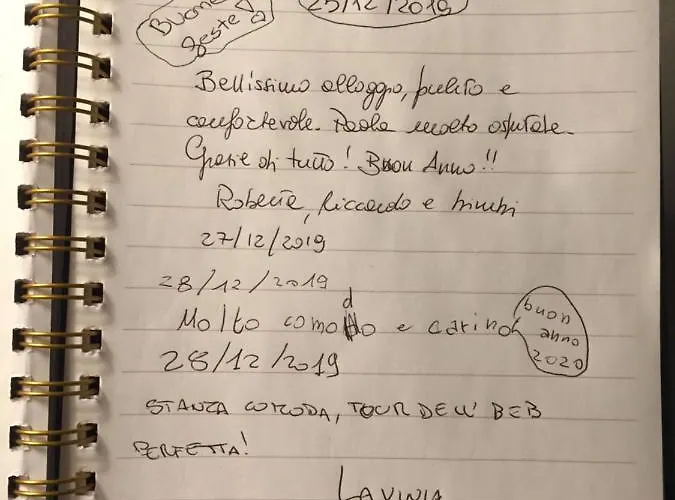 Buone
feste!
25/12/2019
Bellissimo alloggio, pulito e
confortevole. Paola molto ospitale.
Grazie di tutto! Buon Anno!!
Roberta, Riccardo e bimbi
27/12/2019
28/12/2019
Molto comodo e carino
buon
anno
2020
28/12/2019
STANZA COMODA, TOUR DELL' BEB
PERFETTA!
LAVINIA